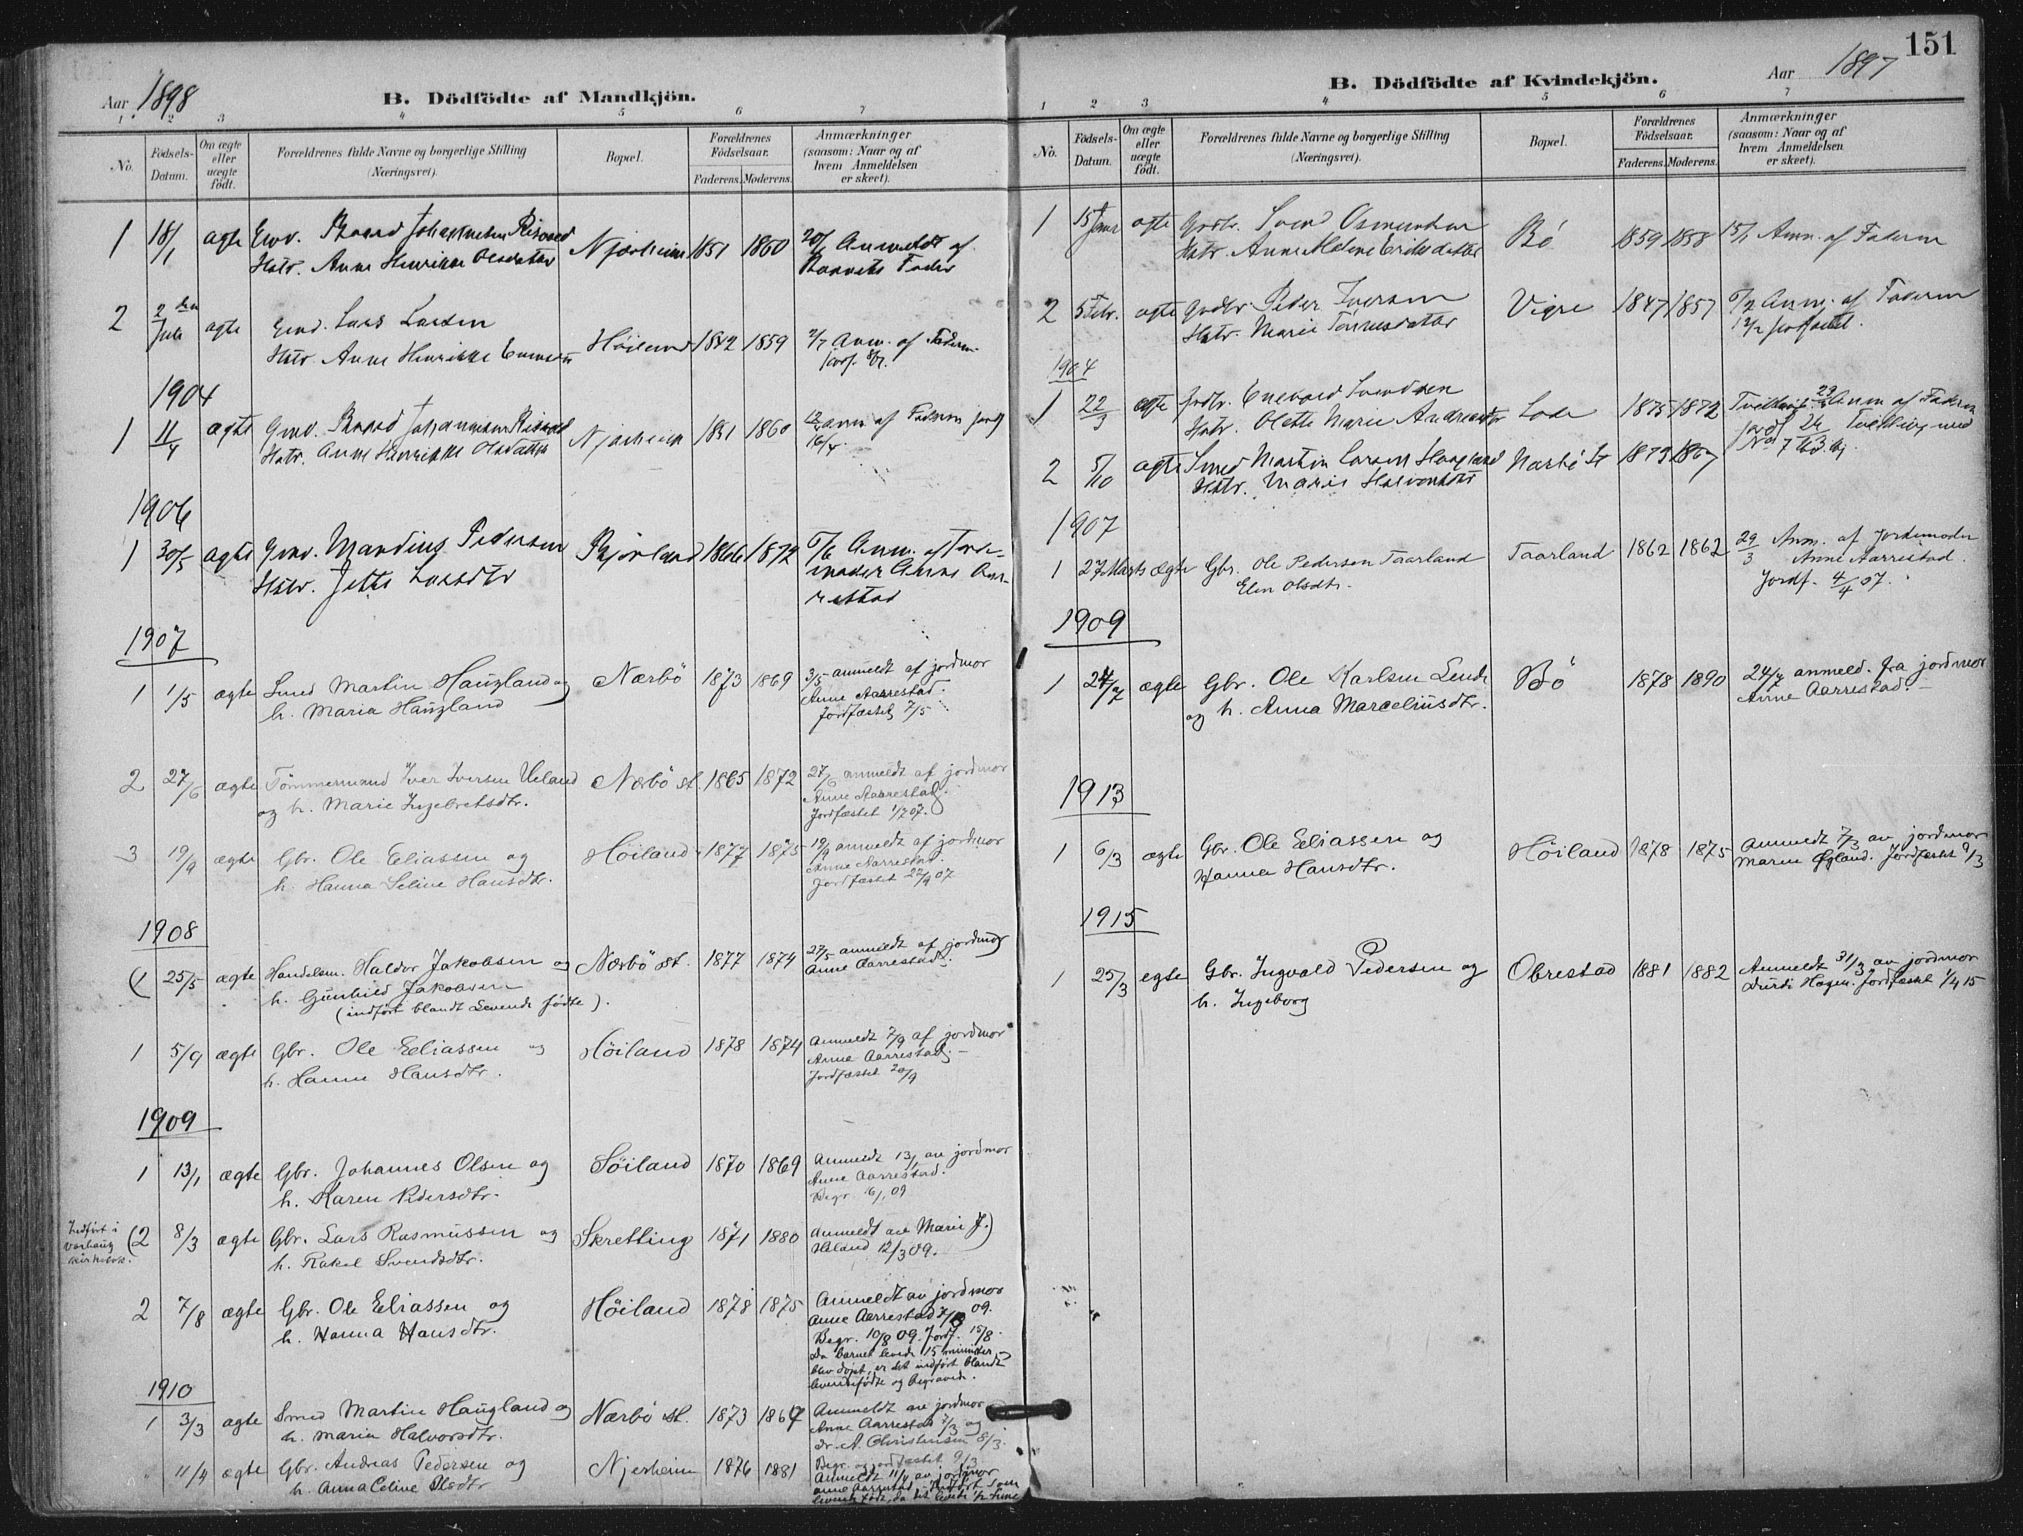 Aar 1898
B. Dödfödte af Mandkjön.
1 2 3 4 5 6 7
No.
Födsels-Datum.
Om ægte eller uægte födt.
Forældrenes fulde Navne og borgerlige Stilling
(Næringsvei).
Bopæl.
Forældrenes Födselsaar.
Faderens. Moderens.
Anmærkninger
(saasom: Naar og af
hvem Anmeldelsen
er skeet).
1 18/1 ægte Gmd. Baard Johannesen Njærheim 1851 1860 20/1 Anmeldt af
Hstr. Anne Henrikke Olsdatter Barnets Fader
2 2den Juli ægte Gmd. Lars Larsen
Hstr. Anne Henrikke Høiland 1842 1859 2/7 Anm. af Faderen
1904
1 11/4 ægte Gmd. Baard Johannesen Njærheim 1851 1860 Anm. af Faderen
Hstr. Anne Henrikke Olsdatter 16/4.
1906
1 30/5 ægte Gmd. Mandius Pedersen Bjorland 1866 1872 5/6 Anm. af Jorde-
Hstr. Jette Larsdtr moder Anne Aar-
restad
1907
1 1/5 ægte Smed Martin Haugland og Nærbö 1873 1869 3/5 anmeldt af jordmor
h. Maria Haugland Anne Aarrestad.
Jordfæstet 7/5
2 27/6 ægte Tömmermand Iver Iversen Ueland Nærbö st. 1865 1872 27/6 anmeldt af jordmor
og h. Marie Ingebretsdtr. Anne Aarrestad.
Jordfæstet 1/7 07.
3 19/9 ægte Gbr. Ole Eliassen og Höiland 1877 1875 19/9 anmeldt af jordmor
h. Hanna Seline Hansdtr. Anne Aarrestad.
Jordfæstet 22/9 07
1908
(1 25/5 ægte Handelsm. Haldor Jakobsen og Nærbö st. 1877 1874 27/5 anmeldt af jordmor
h. Gunhild Jakobsen Anne Aarrestad.
(indfört blandt Levende födte).
1 5/9 ægte Gbr. Ole Eliassen og Höiland 1878 1874 Anmeldt 7/9 af jordmor
h. Hanne Hansdtr. Anne Aarrestad.
Jordfæstet 20/9
1909
1 13/1 ægte Gbr. Johannes Olsen og Söiland 1870 1869 Anmeldt 13/1 av jordmor
h. Karen Pedersdtr. Anne Aarrestad.
Begr. 16/1 09
Indfört i
Varhaug
kirkebok.
(2 8/3 ægte Gbr. Lars Rasmussen og Skretting 1871 1880 Anmeldt av Marie J.
h. Rakel Svendsdtr. Ueland 12/3 09.)
2 7/8 ægte Gbr. Ole Eliassen og Höiland 1878 1875 Anmeldt av jordmor
h. Hanna Hansdtr. Anne Aarrestad 7/8 09.
Begr. 10/8 09. Jordf. 15/8.
Da barnet levede 15 minutter
blev döpt, er det indfört blandt
levendefödte og begravede.
1910
1 3/3 ægte Smed Martin Haugland og Nærbö st. 1873 1867 Anmeldt av jordmor
h. Maria Halvorsdtr. Anne Aarrestad 7/3 og
dr. A. Christensen 8/3.
Begr. og jordfæstet 9/3
" 11/4 ægte Gbr. Andreas Pedersen og Njerheim 1876 1881 Anmeldt 11/4 av jordmor
h. Anna Celine Olsdtr Anne Aarrestad. Indfört som
levende födt, da det levede 1/2 time
151
Aar 1897
B. Dödfödte af Kvindekjön.
1 2 3 4 5 6 7
No.
Födsels-Datum.
Om ægte eller uægte födt.
Forældrenes fulde Navne og borgerlige Stilling
(Næringsvei).
Bopæl.
Forældrenes Födselsaar.
Faderens. Moderens.
Anmærkninger
(saasom: Naar og af
hvem Anmeldelsen
er skeet).
1 15 Janr ægte Grdbr. Svend Osmundsen Bö 1859 1858 15/1 Anm. af Faderen
Hstr. Anne Malene Eriksdatter
2 5 Febr. ægte Grdbr Peder Iversen Vigre 1847 1857 6/2 Anm. af Faderen
Hstr. Marie Tönnesdatter
1904
1 22/3 ægte Grdbr. Enevald Svendsen Lode 1875 1872 Anm. af Faderen
Hstr. Olette Marie Andreasdtr Tvilling med
2 5/10 ægte Smed Martin Larsen Haugland Nærbö St 1873 1867
Hstr. Marie Halvorsdtr
1907
1 27 Marts ægte Gbr. Ole Pedersen Taarland Taarland 1862 1862 29/3 Anm. af Jordemoder
Elen Olsdtr. Anne Aarrestad.
Jordf. 4/4 07.
1909
1 24/7 ægte Gbr. Ole Karlsen Lende Bö 1878 1890 24/7 anmeld. fra jordmor
og h. Anna Marceliusdtr. Anne Aarrestad.
1913
1 6/3 ægte Gbr. Ole Eliassen og Höiland 1878 1875 Anmeldt 7/3 av jordmor
Hanna Hansdtr. Maren Øgland. Jordfæstet 9/3
1915
1 25/3 egte Gbr. Ingvald Pedersen og Obrestad 1881 1882 Anmeldt 31/3 av jordmor
h. Ingeborg Hagen. Jordfæstet 1/4 15